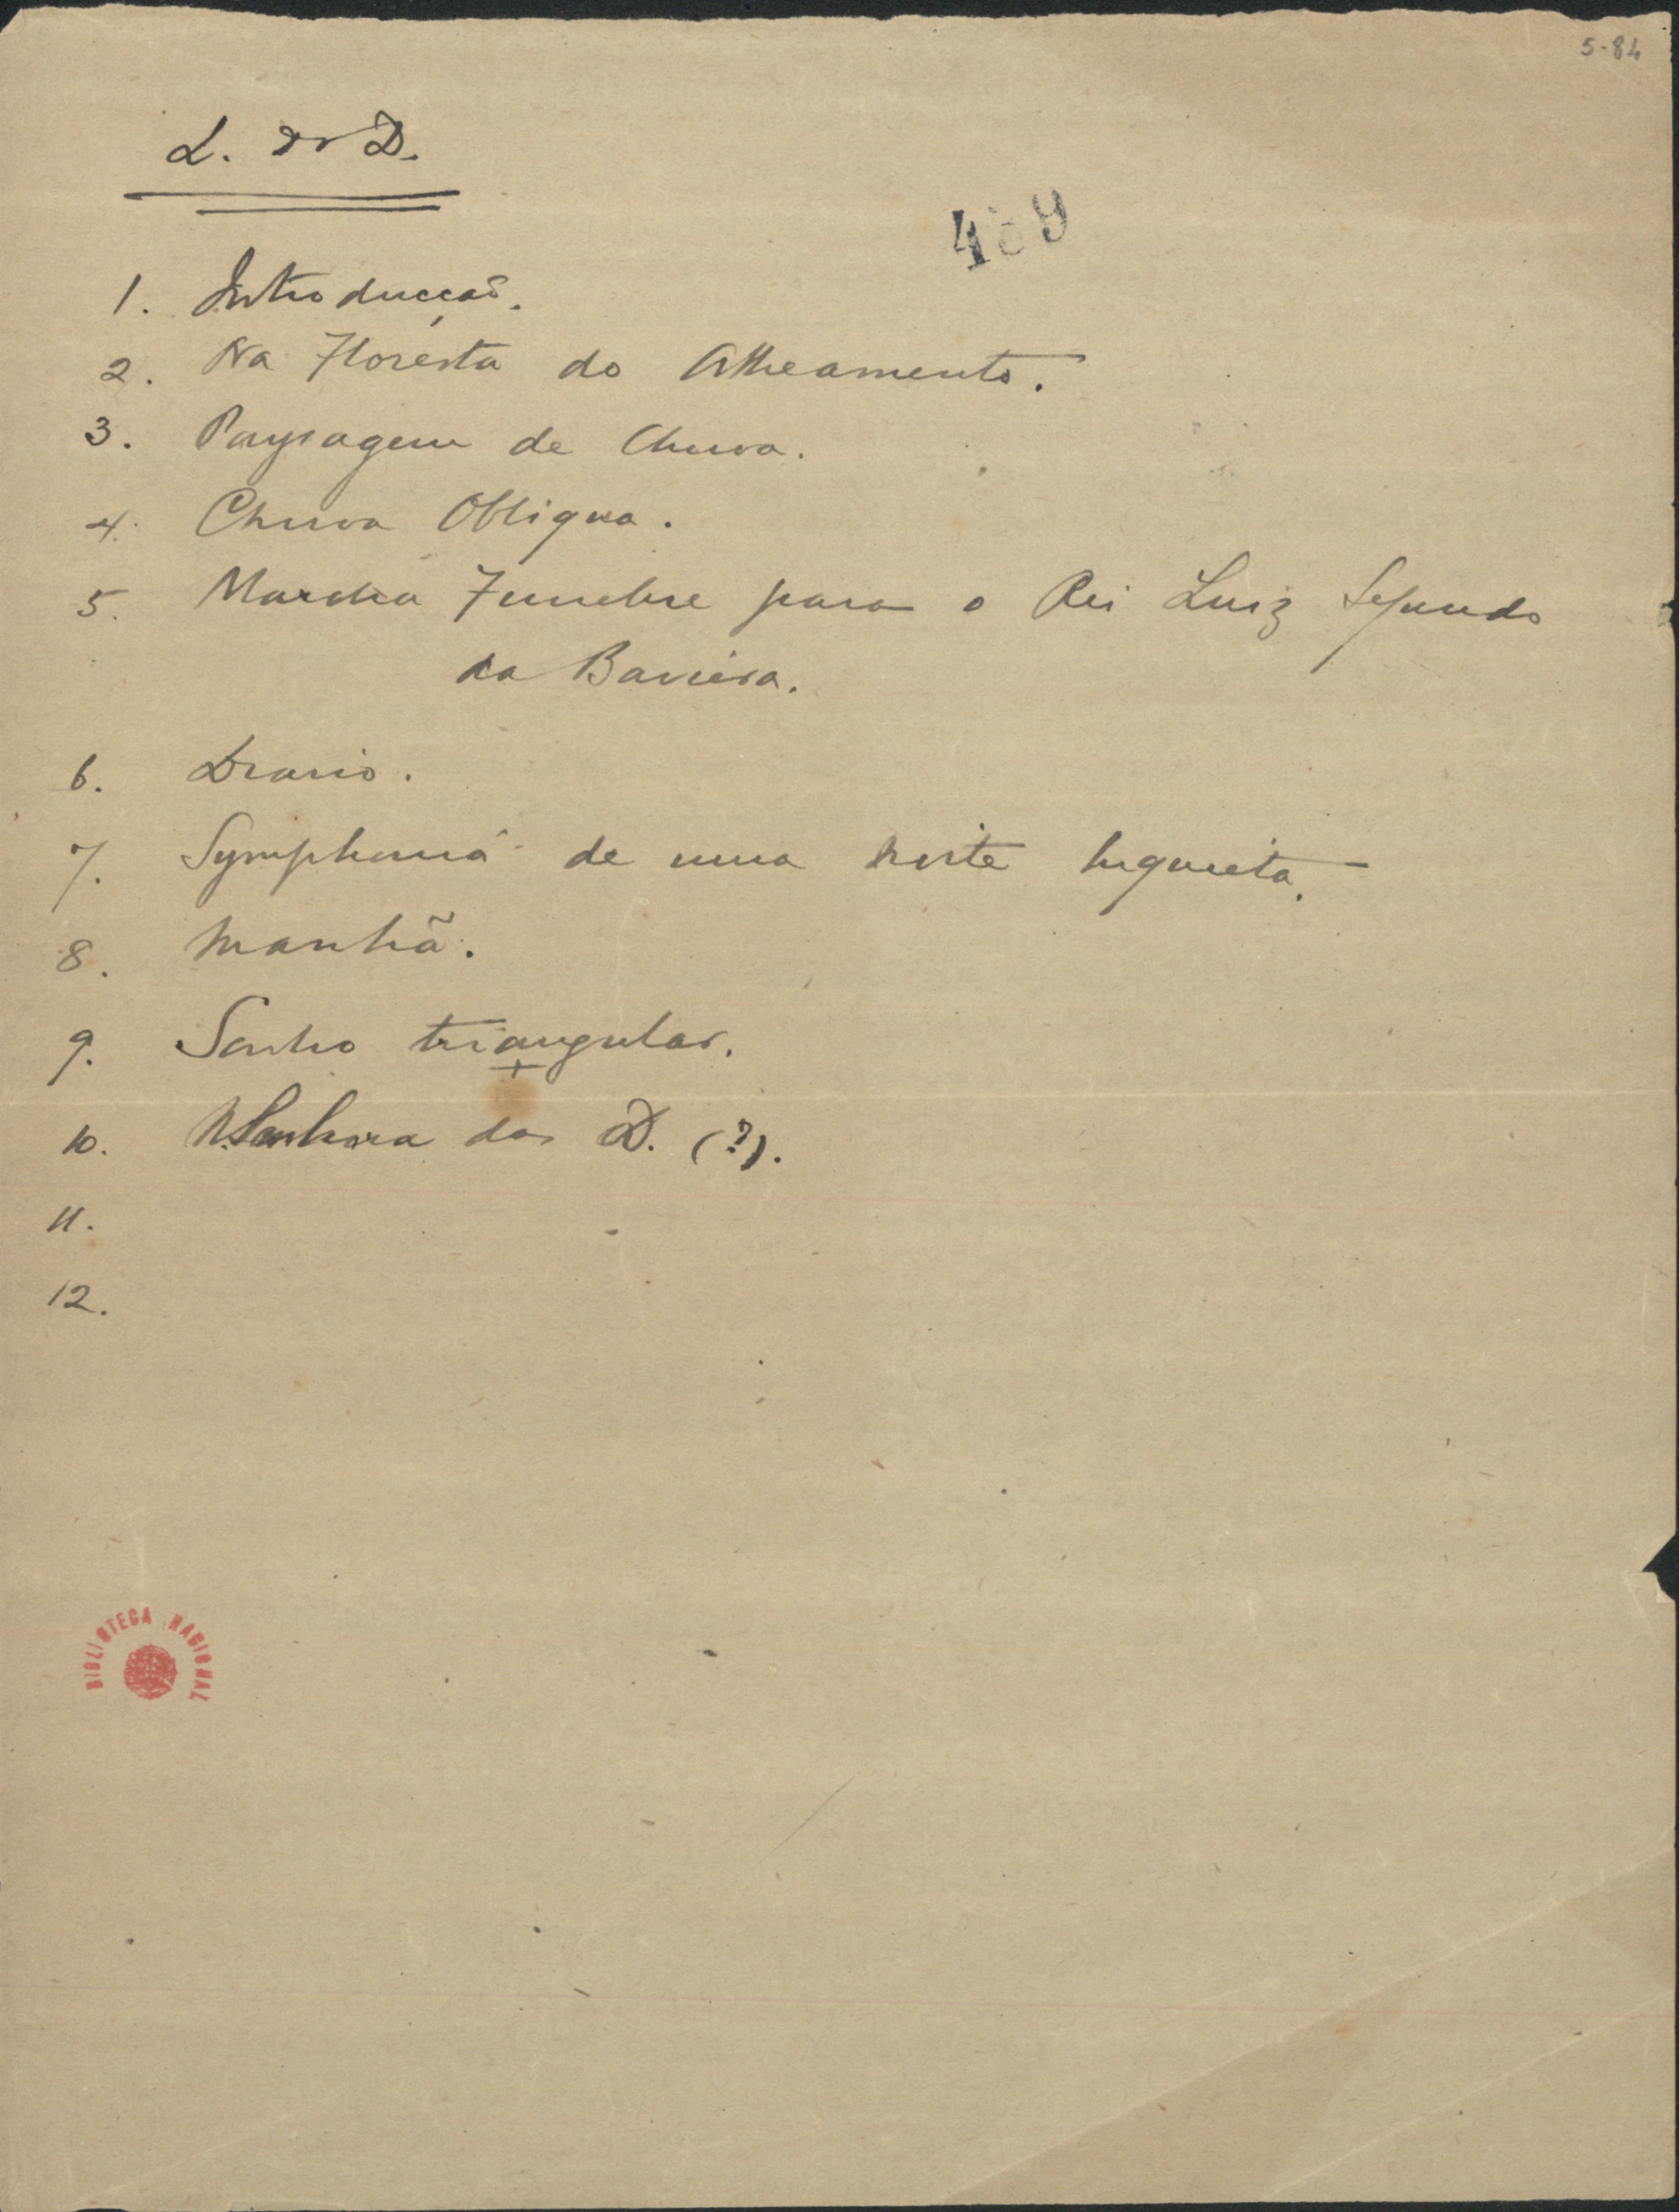 5-84
L. do D.
4 9
1. Introducção.
2. Na Floresta do Alheamento.
3. Paysagem de Chuva.
4. Chuva Obliqua.
5. Marcha Funebre para o Rei Luiz Segundo
da Baviera.
6. Diario.
7. Symphonia de uma noite inquieta.
8. Manhã.
9. Sonho triangular.
10. N. Senhora do D. (?).
11.
12.
BIBLIOTECA NACIONAL